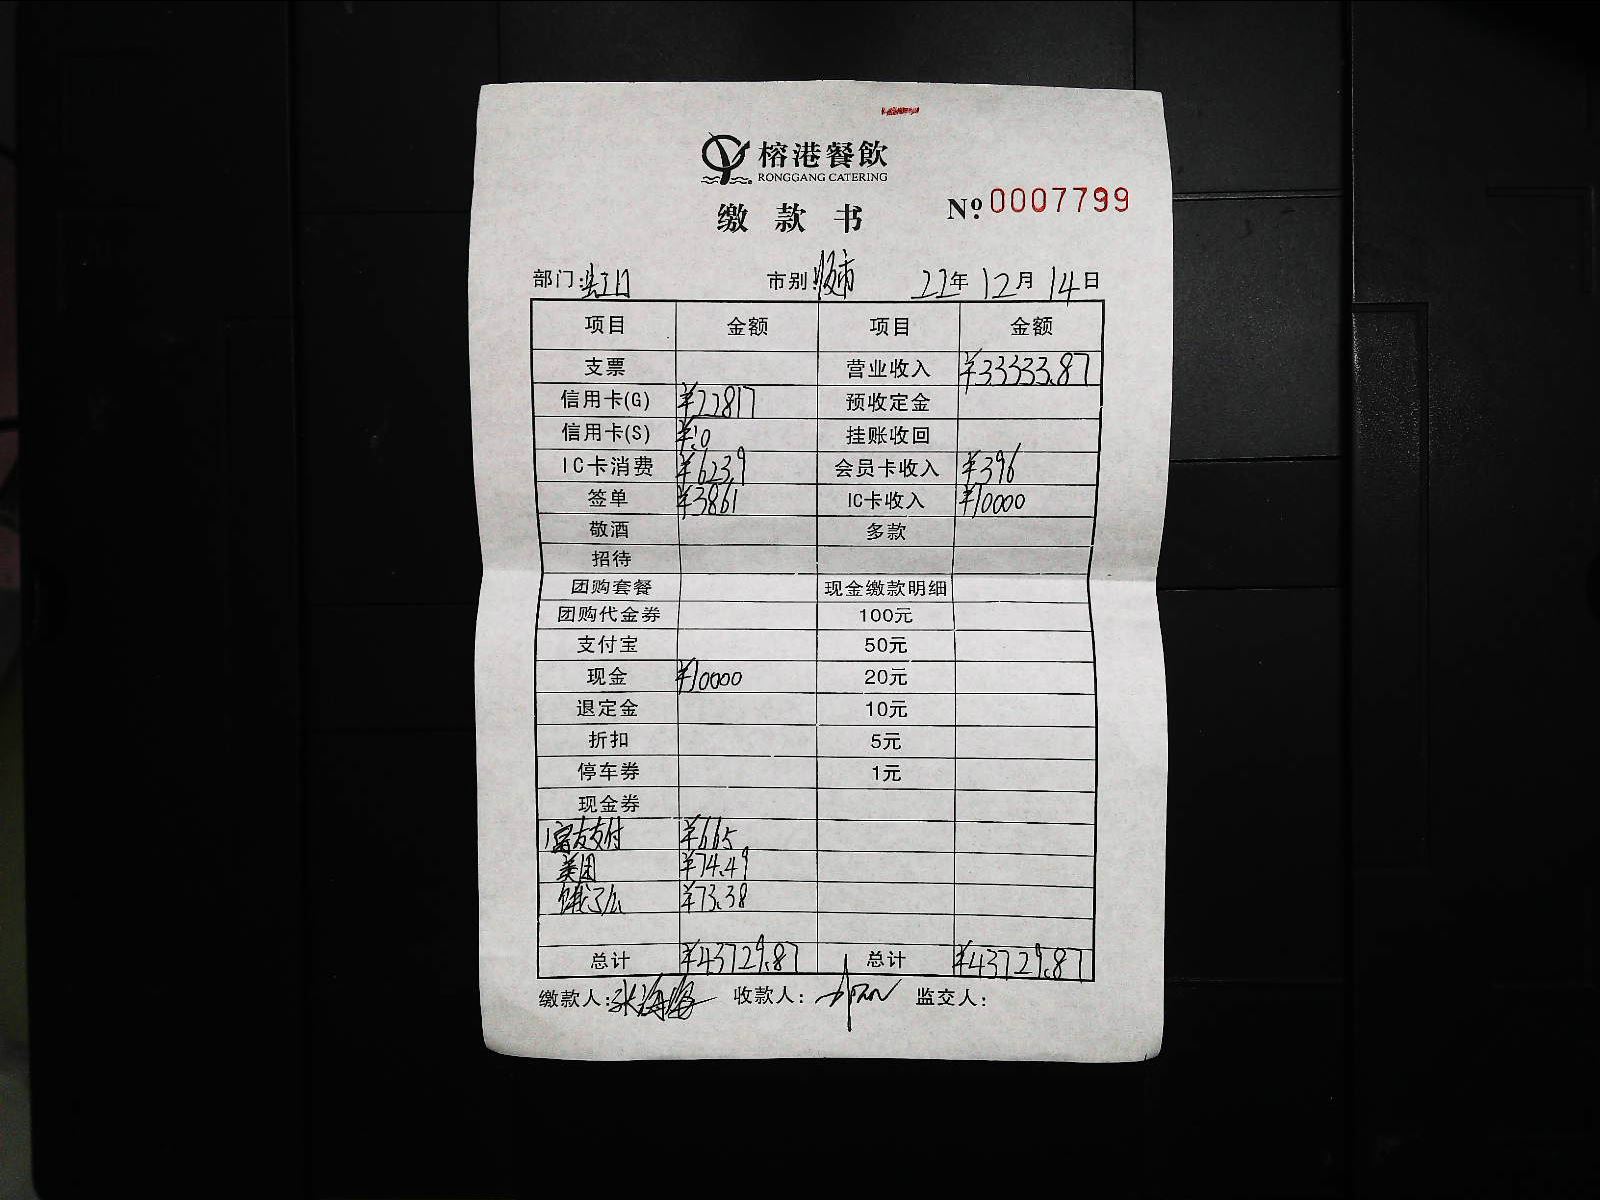 榕港餐飲
RONGGANG CATERING
缴款书
Nº: 0007799
部门: 虹口 市别: 市 22年12月14日
项目 金额 项目 金额
支票 营业收入 ¥33333.87
信用卡(G) ¥22817 预收定金
信用卡(S) ¥:0 挂账收回
IC卡消费 ¥6239 会员卡收入 ¥396
签单 ¥3861 IC卡收入 ¥10000
敬酒 多款
招待
团购套餐 现金缴款明细
团购代金券 100元
支付宝 50元
现金 ¥10000 20元
退定金 10元
折扣 5元
停车券 1元
现金券
富友支付 ¥665
美团 ¥74.49
饿了么 ¥73.38
总计 ¥43729.87 总计 ¥43729.87
缴款人: 张海 收款人: 监交人: